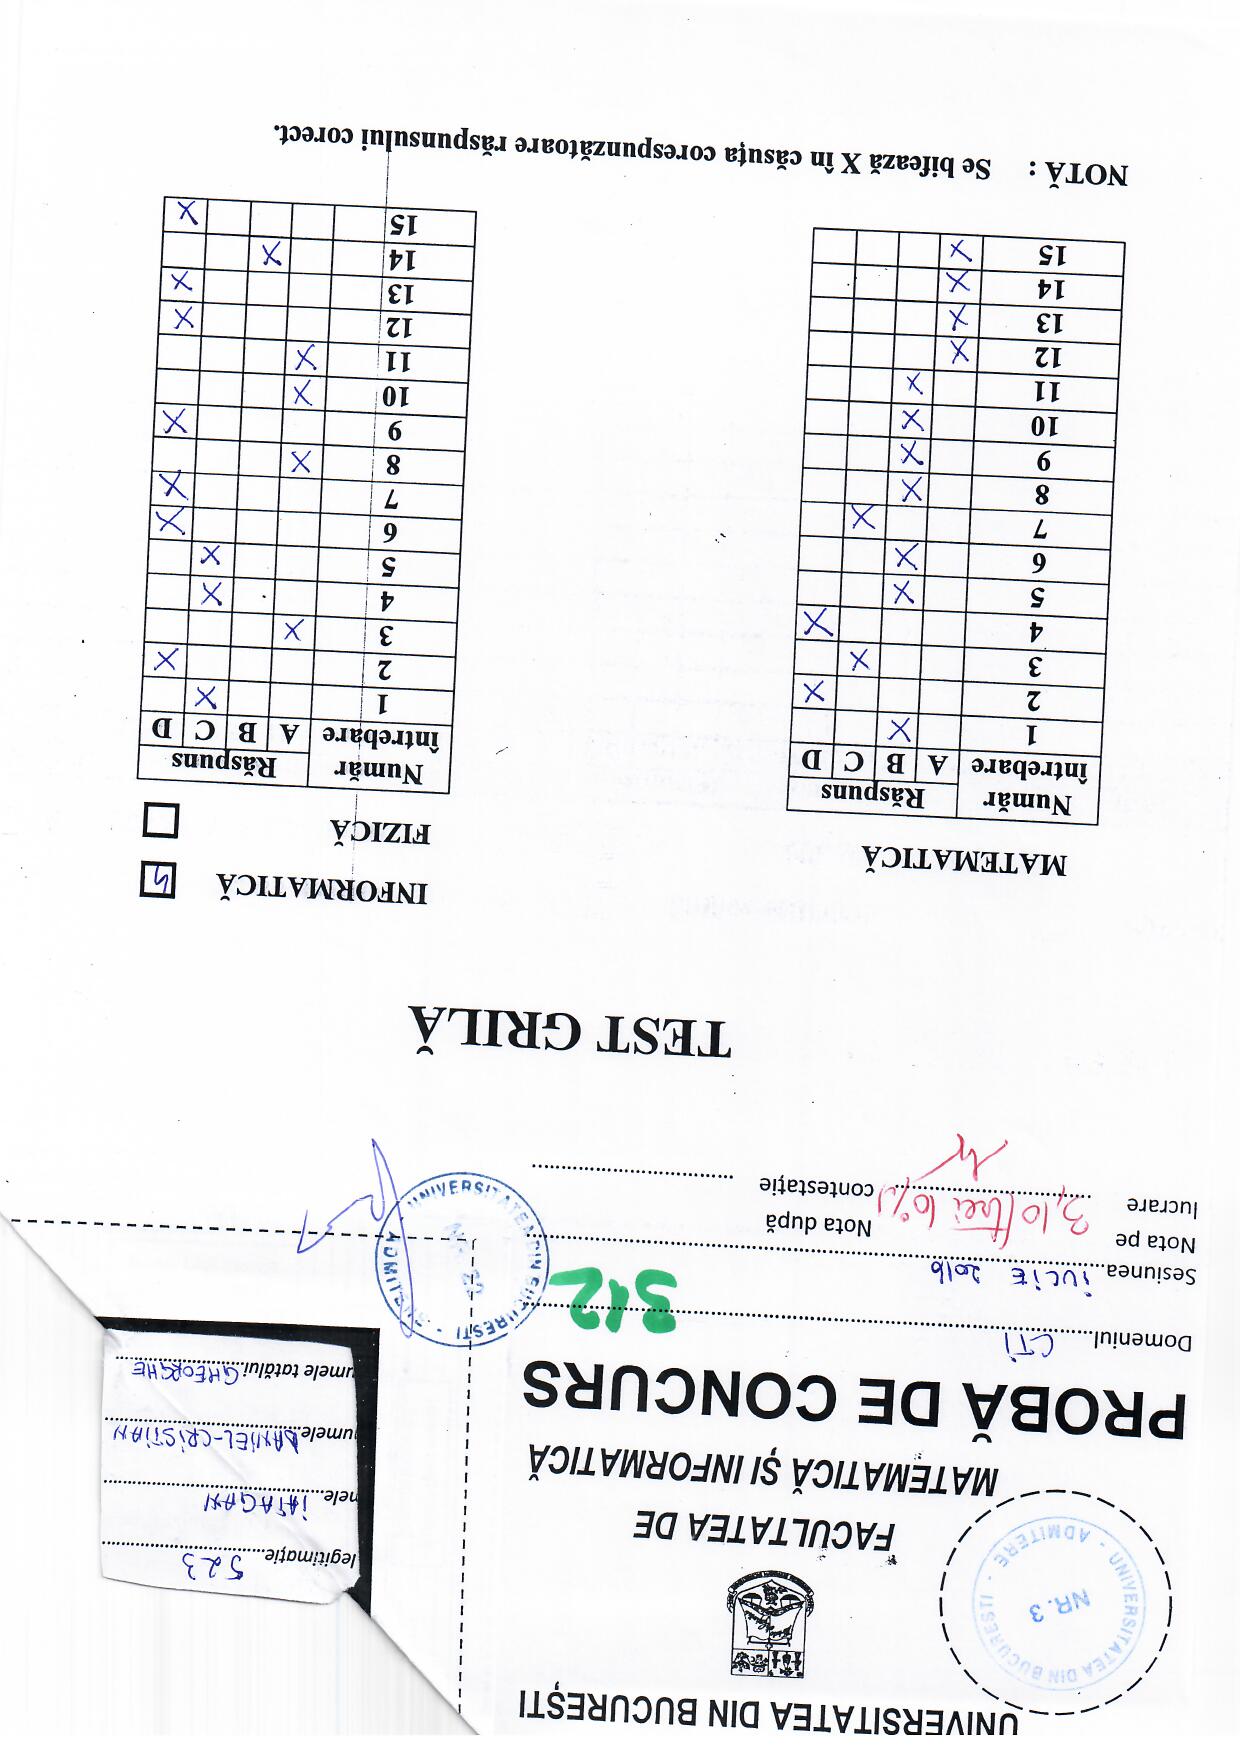 UNIVERSITATEA DIN BUCUREȘTI
FACULTATEA DE
MATEMATICĂ ȘI INFORMATICĂ
PROBĂ DE CONCURS
UNIVERSITATEA DIN BUCUREȘTI - ADMITERE -
NR. 3
legitimație 523
mele IATAGAN
umele DANIEL-CRISTIAN
umele tatălui GHEORGHE
Domeniul CTI
312
Sesiunea IULIE 2016
Nota pe lucrare 3,10 (trei 10%)
Nota după contestație
UNIVERSITATEA DIN BUCURESTI - ADMITERE
TEST GRILĂ
MATEMATICĂ
Număr întrebare Răspuns
A B C D
1 X
2 X
3 X
4 X
5 X
6 X
7 X
8 X
9 X
10 X
11 X
12 X
13 X
14 X
15 X
INFORMATICĂ
FIZICĂ
Număr întrebare Răspuns
A B C D
1 X
2 X
3 X
4 X
5 X
6 X
7 X
8 X
9 X
10 X
11 X
12 X
13 X
14 X
15 X
NOTĂ : Se bifează X în căsuța corespunzătoare răspunsului corect.